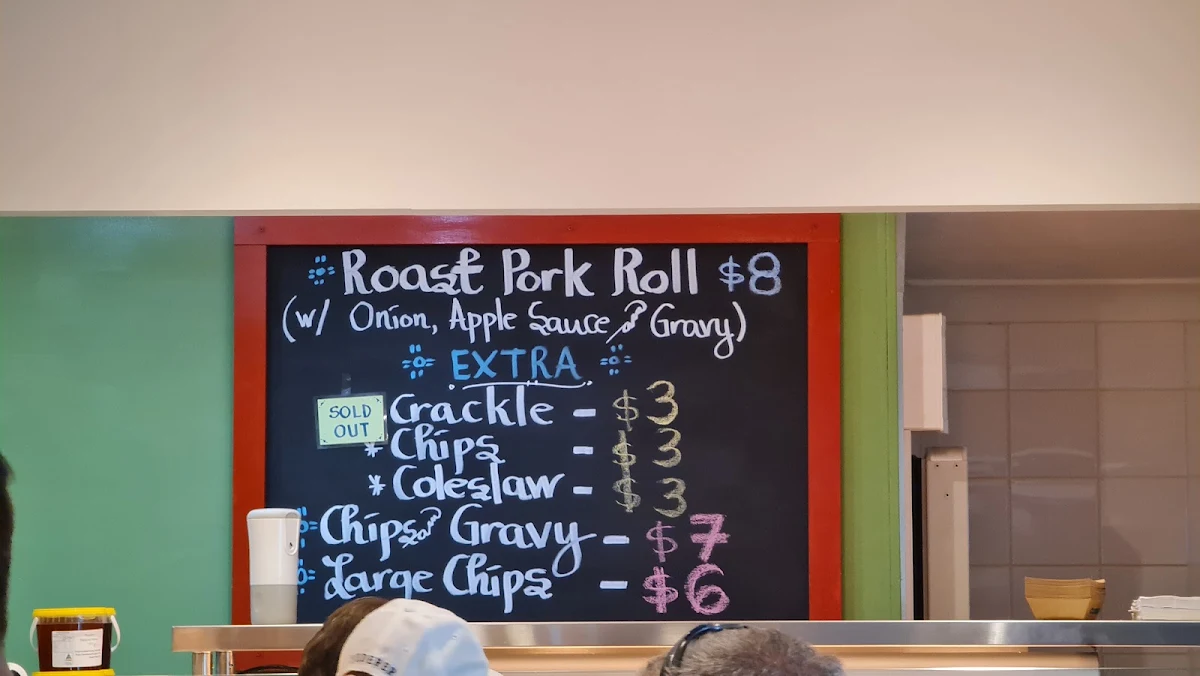 Roast Pork Roll $8
(w/ Onion, Apple Sauce & Gravy)
EXTRA
SOLD OUT
Crackle - $3
* Chips - $3
* Coleslaw - $3
Chips & Gravy - $7
Large Chips - $6